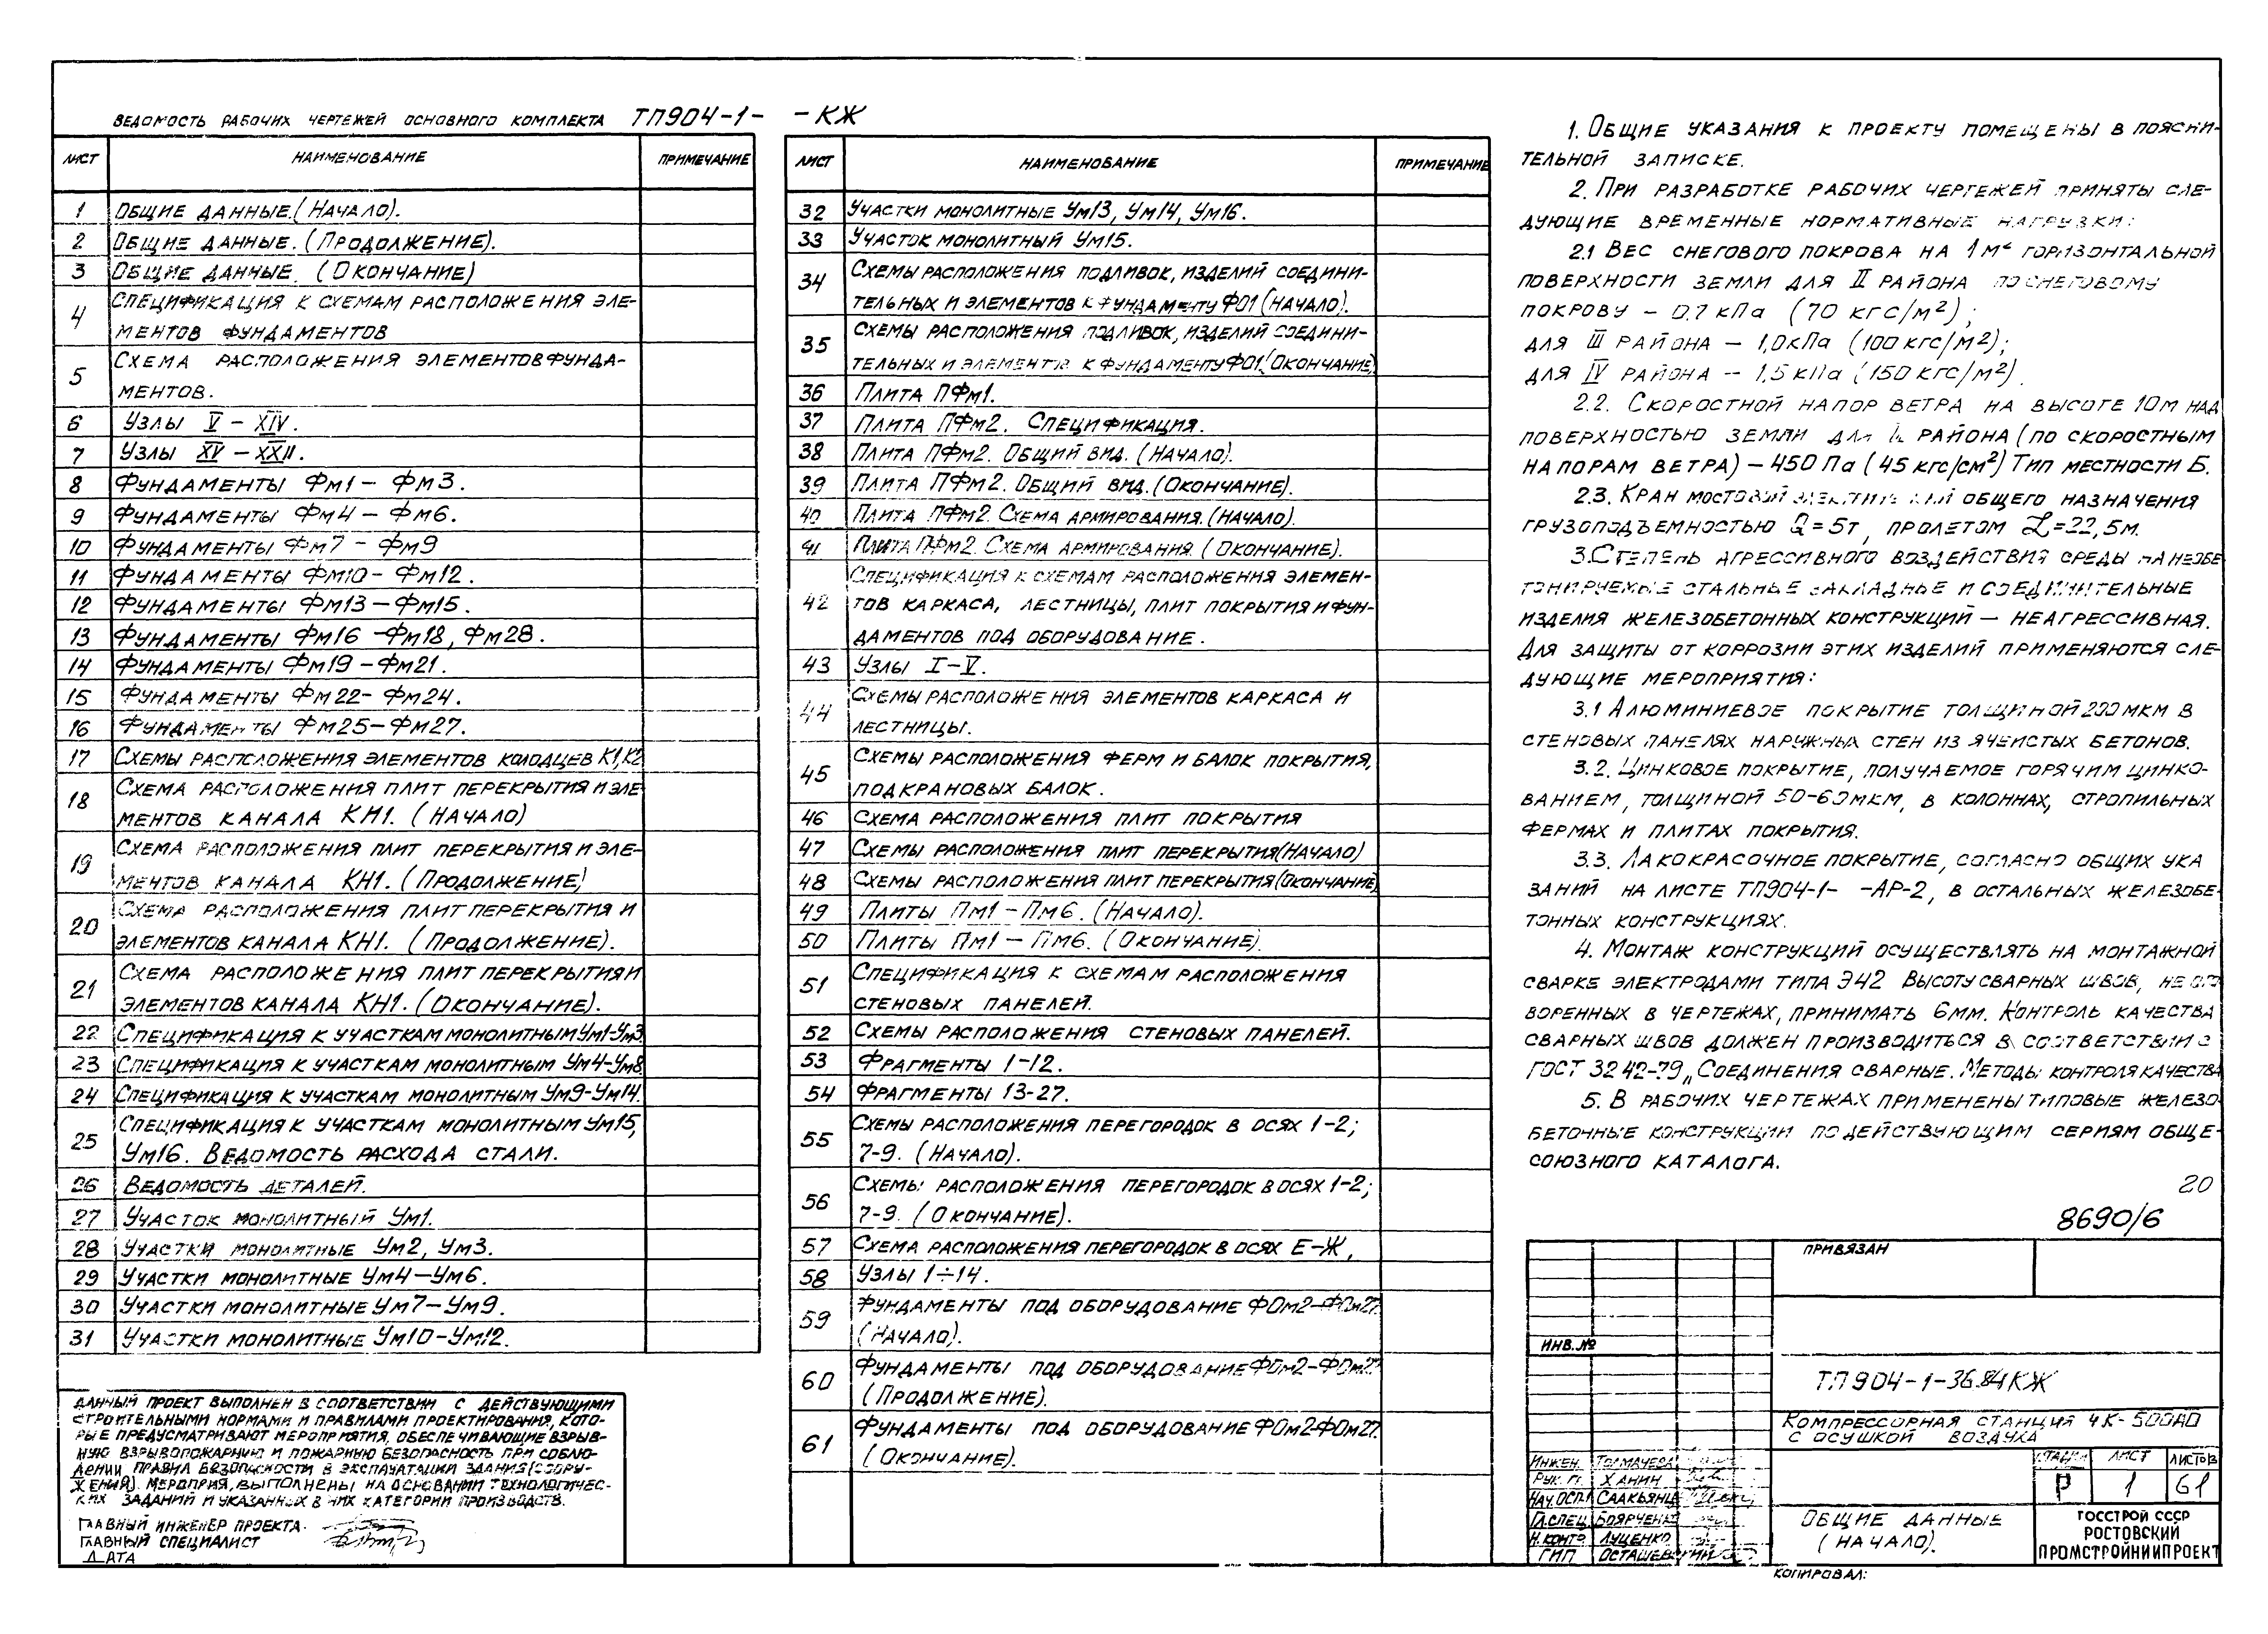 ВЕДОМОСТЬ РАБОЧИХ ЧЕРТЕЖЕЙ ОСНОВНОГО КОМПЛЕКТА ТП904-1- -КЖ
ЛИСТ НАИМЕНОВАНИЕ ПРИМЕЧАНИЕ
1 ОБЩИЕ ДАННЫЕ.(НАЧАЛО).
2 ОБЩИЕ ДАННЫЕ. (ПРОДОЛЖЕНИЕ).
3 ОБЩИЕ ДАННЫЕ. (ОКОНЧАНИЕ)
4 СПЕЦИФИКАЦИЯ К СХЕМАМ РАСПОЛОЖЕНИЯ ЭЛЕ-
МЕНТОВ ФУНДАМЕНТОВ
5 СХЕМА РАСПОЛОЖЕНИЯ ЭЛЕМЕНТОВ ФУНДА-
МЕНТОВ.
6 УЗЛЫ V – XIV.
7 УЗЛЫ XV – XXII.
8 ФУНДАМЕНТЫ ФМ1 – ФМ3.
9 ФУНДАМЕНТЫ ФМ4 – ФМ6.
10 ФУНДАМЕНТЫ ФМ7 – ФМ9
11 ФУНДАМЕНТЫ ФМ10 – ФМ12.
12 ФУНДАМЕНТЫ ФМ13 – ФМ15.
13 ФУНДАМЕНТЫ ФМ16 – ФМ18, ФМ28.
14 ФУНДАМЕНТЫ ФМ19 – ФМ21.
15 ФУНДАМЕНТЫ ФМ22 – ФМ24.
16 ФУНДАМЕНТЫ ФМ25 – ФМ27.
17 СХЕМЫ РАСПОЛОЖЕНИЯ ЭЛЕМЕНТОВ КОЛОДЦЕВ К1, К2
18 СХЕМА РАСПОЛОЖЕНИЯ ПЛИТ ПЕРЕКРЫТИЯ И ЭЛЕ-
МЕНТОВ КАНАЛА КН1. (НАЧАЛО)
19 СХЕМА РАСПОЛОЖЕНИЯ ПЛИТ ПЕРЕКРЫТИЯ И ЭЛЕ-
МЕНТОВ КАНАЛА КН1. (ПРОДОЛЖЕНИЕ)
20 СХЕМА РАСПОЛОЖЕНИЯ ПЛИТ ПЕРЕКРЫТИЯ И
ЭЛЕМЕНТОВ КАНАЛА КН1. (ПРОДОЛЖЕНИЕ).
21 СХЕМА РАСПОЛОЖЕНИЯ ПЛИТ ПЕРЕКРЫТИЯ И
ЭЛЕМЕНТОВ КАНАЛА КН1. (ОКОНЧАНИЕ).
22 СПЕЦИФИКАЦИЯ К УЧАСТКАМ МОНОЛИТНЫМ УМ1-УМ3
23 СПЕЦИФИКАЦИЯ К УЧАСТКАМ МОНОЛИТНЫМ УМ4-УМ8
24 СПЕЦИФИКАЦИЯ К УЧАСТКАМ МОНОЛИТНЫМ УМ9-УМ14.
25 СПЕЦИФИКАЦИЯ К УЧАСТКАМ МОНОЛИТНЫМ УМ15,
УМ16. ВЕДОМОСТЬ РАСХОДА СТАЛИ.
26 ВЕДОМОСТЬ ДЕТАЛЕЙ.
27 УЧАСТОК МОНОЛИТНЫЙ УМ1.
28 УЧАСТКИ МОНОЛИТНЫЕ УМ2, УМ3.
29 УЧАСТКИ МОНОЛИТНЫЕ УМ4 – УМ6.
30 УЧАСТКИ МОНОЛИТНЫЕ УМ7 – УМ9.
31 УЧАСТКИ МОНОЛИТНЫЕ УМ10 – УМ12.
ДАННЫЙ ПРОЕКТ ВЫПОЛНЕН В СООТВЕТСТВИИ С ДЕЙСТВУЮЩИМИ
СТРОИТЕЛЬНЫМИ НОРМАМИ И ПРАВИЛАМИ ПРОЕКТИРОВАНИЯ, КОТО-
РЫЕ ПРЕДУСМАТРИВАЮТ МЕРОПРИЯТИЯ, ОБЕСПЕЧИВАЮЩИЕ ВЗРЫВ-
НУЮ ВЗРЫВОПОЖАРНУЮ И ПОЖАРНУЮ БЕЗОПАСНОСТЬ ПРИ СОБЛЮ-
ДЕНИИ ПРАВИЛ БЕЗОПАСНОСТИ В ЭКСПЛУАТАЦИИ ЗДАНИЯ (СООРУ-
ЖЕНИЯ). МЕРОПРИЯ, ВЫПОЛНЕНЫ НА ОСНОВАНИИ ТЕХНОЛОГИЧЕС-
КИХ ЗАДАНИЙ И УКАЗАННЫХ В НИХ КАТЕГОРИЙ ПРОИЗВОДСТВ.
ГЛАВНЫЙ ИНЖЕНЕР ПРОЕКТА.
ГЛАВНЫЙ СПЕЦИАЛИСТ
ДАТА
ЛИСТ НАИМЕНОВАНИЕ ПРИМЕЧАНИЕ
32 УЧАСТКИ МОНОЛИТНЫЕ УМ13, УМ14, УМ16.
33 УЧАСТОК МОНОЛИТНЫЙ УМ15.
34 СХЕМЫ РАСПОЛОЖЕНИЯ ПОДЛИВОК, ИЗДЕЛИЙ СОЕДИНИ-
ТЕЛЬНЫХ И ЭЛЕМЕНТОВ К ФУНДАМЕНТУ ФО1 (НАЧАЛО).
35 СХЕМЫ РАСПОЛОЖЕНИЯ ПОДЛИВОК, ИЗДЕЛИЙ СОЕДИНИ-
ТЕЛЬНЫХ И ЭЛЕМЕНТОВ К ФУНДАМЕНТУ ФО1. (ОКОНЧАНИЕ)
36 ПЛИТА ПФМ1.
37 ПЛИТА ПФМ2. СПЕЦИФИКАЦИЯ.
38 ПЛИТА ПФМ2. ОБЩИЙ ВИД. (НАЧАЛО).
39 ПЛИТА ПФМ2. ОБЩИЙ ВИД. (ОКОНЧАНИЕ).
40 ПЛИТА ПФМ2. СХЕМА АРМИРОВАНИЯ. (НАЧАЛО).
41 ПЛИТА ПФМ2. СХЕМА АРМИРОВАНИЯ. (ОКОНЧАНИЕ).
42 СПЕЦИФИКАЦИЯ К СХЕМАМ РАСПОЛОЖЕНИЯ ЭЛЕМЕН-
ТОВ КАРКАСА, ЛЕСТНИЦЫ, ПЛИТ ПОКРЫТИЯ И ФУН-
ДАМЕНТОВ ПОД ОБОРУДОВАНИЕ.
43 УЗЛЫ I – V.
44 СХЕМЫ РАСПОЛОЖЕНИЯ ЭЛЕМЕНТОВ КАРКАСА И
ЛЕСТНИЦЫ.
45 СХЕМЫ РАСПОЛОЖЕНИЯ ФЕРМ И БАЛОК ПОКРЫТИЯ,
ПОДКРАНОВЫХ БАЛОК.
46 СХЕМА РАСПОЛОЖЕНИЯ ПЛИТ ПОКРЫТИЯ
47 СХЕМЫ РАСПОЛОЖЕНИЯ ПЛИТ ПЕРЕКРЫТИЯ (НАЧАЛО)
48 СХЕМЫ РАСПОЛОЖЕНИЯ ПЛИТ ПЕРЕКРЫТИЯ (ОКОНЧАНИЕ)
49 ПЛИТЫ ПМ1 – ПМ6. (НАЧАЛО).
50 ПЛИТЫ ПМ1 – ПМ6. (ОКОНЧАНИЕ).
51 СПЕЦИФИКАЦИЯ К СХЕМАМ РАСПОЛОЖЕНИЯ
СТЕНОВЫХ ПАНЕЛЕЙ.
52 СХЕМЫ РАСПОЛОЖЕНИЯ СТЕНОВЫХ ПАНЕЛЕЙ.
53 ФРАГМЕНТЫ 1-12.
54 ФРАГМЕНТЫ 13-27.
55 СХЕМЫ РАСПОЛОЖЕНИЯ ПЕРЕГОРОДОК В ОСЯХ 1-2;
7-9. (НАЧАЛО).
56 СХЕМЫ РАСПОЛОЖЕНИЯ ПЕРЕГОРОДОК В ОСЯХ 1-2;
7-9. (ОКОНЧАНИЕ).
57 СХЕМА РАСПОЛОЖЕНИЯ ПЕРЕГОРОДОК В ОСЯХ Е-Ж,
58 УЗЛЫ 1÷14.
59 ФУНДАМЕНТЫ ПОД ОБОРУДОВАНИЕ ФОМ2-ФОМ27.
(НАЧАЛО).
60 ФУНДАМЕНТЫ ПОД ОБОРУДОВАНИЕ ФОМ2-ФОМ27
(ПРОДОЛЖЕНИЕ).
61 ФУНДАМЕНТЫ ПОД ОБОРУДОВАНИЕ ФОМ2-ФОМ27.
(ОКОНЧАНИЕ).
1. ОБЩИЕ УКАЗАНИЯ К ПРОЕКТУ ПОМЕЩЕНЫ В ПОЯСНИ-
ТЕЛЬНОЙ ЗАПИСКЕ.
2. ПРИ РАЗРАБОТКЕ РАБОЧИХ ЧЕРТЕЖЕЙ ПРИНЯТЫ СЛЕ-
ДУЮЩИЕ ВРЕМЕННЫЕ НОРМАТИВНЫЕ НАГРУЗКИ:
2.1 ВЕС СНЕГОВОГО ПОКРОВА НА 1 М² ГОРИЗОНТАЛЬНОЙ
ПОВЕРХНОСТИ ЗЕМЛИ ДЛЯ II РАЙОНА ПО СНЕГОВОМУ
ПОКРОВУ – 0.7 КПа (70 КГС/М²);
ДЛЯ III РАЙОНА – 1,0 КПа (100 КГС/М²);
ДЛЯ IV РАЙОНА – 1,5 КПа (150 КГС/М²).
2.2. СКОРОСТНОЙ НАПОР ВЕТРА НА ВЫСОТЕ 10М НАД
ПОВЕРХНОСТЬЮ ЗЕМЛИ ДЛЯ РАЙОНА (ПО СКОРОСТНЫМ
НАПОРАМ ВЕТРА) – 450 Па (45 КГС/СМ²) ТИП МЕСТНОСТИ Б.
2.3. КРАН МОСТОВОЙ ОБЩЕГО НАЗНАЧЕНИЯ
ГРУЗОПОДЪЕМНОСТЬЮ Q=5Т, ПРОЛЕТОМ L=22,5М.
3. СТЕПЕНЬ АГРЕССИВНОГО ВОЗДЕЙСТВИЯ СРЕДЫ НА НЕОБЕ
ТОНИРУЕМЫЕ СТАЛЬНЫЕ ЗАКЛАДНЫЕ И СОЕДИНИТЕЛЬНЫЕ
ИЗДЕЛИЯ ЖЕЛЕЗОБЕТОННЫХ КОНСТРУКЦИЙ – НЕАГРЕССИВНАЯ.
ДЛЯ ЗАЩИТЫ ОТ КОРРОЗИИ ЭТИХ ИЗДЕЛИЙ ПРИМЕНЯЮТСЯ СЛЕ-
ДУЮЩИЕ МЕРОПРИЯТИЯ:
3.1 АЛЮМИНИЕВОЕ ПОКРЫТИЕ ТОЛЩИНОЙ 200 МКМ В
СТЕНОВЫХ ПАНЕЛЯХ НАРУЖНЫХ СТЕН ИЗ ЯЧЕИСТЫХ БЕТОНОВ.
3.2. ЦИНКОВОЕ ПОКРЫТИЕ, ПОЛУЧАЕМОЕ ГОРЯЧИМ ЦИНКО-
ВАНИЕМ, ТОЛЩИНОЙ 50-60МКМ, В КОЛОННАХ, СТРОПИЛЬНЫХ
ФЕРМАХ И ПЛИТАХ ПОКРЫТИЯ.
3.3. ЛАКОКРАСОЧНОЕ ПОКРЫТИЕ, СОГЛАСНО ОБЩИХ УКА
ЗАНИЙ НА ЛИСТЕ ТП904-1- -АР-2, В ОСТАЛЬНЫХ ЖЕЛЕЗОБЕ-
ТОННЫХ КОНСТРУКЦИЯХ.
4. МОНТАЖ КОНСТРУКЦИЙ ОСУЩЕСТВЛЯТЬ НА МОНТАЖНОЙ
СВАРКЕ ЭЛЕКТРОДАМИ ТИПА Э42 ВЫСОТУ СВАРНЫХ ШВОВ, НЕ ОГО
ВОРЕННЫХ В ЧЕРТЕЖАХ, ПРИНИМАТЬ 6ММ. КОНТРОЛЬ КАЧЕСТВА
СВАРНЫХ ШВОВ ДОЛЖЕН ПРОИЗВОДИТЬСЯ В СООТВЕТСТВИИ С
ГОСТ 3242-79 „СОЕДИНЕНИЯ СВАРНЫЕ. МЕТОДЫ КОНТРОЛЯ КАЧЕСТВА
5. В РАБОЧИХ ЧЕРТЕЖАХ ПРИМЕНЕНЫ ТИПОВЫЕ ЖЕЛЕЗО-
БЕТОННЫЕ КОНСТРУКЦИИ ПО ДЕЙСТВУЮЩИМ СЕРИЯМ ОБЩЕ-
СОЮЗНОГО КАТАЛОГА.
20
8690/6
ПРИВЯЗАН
ИНВ.№
ТП904-1-36.84 КЖ
КОМПРЕССОРНАЯ СТАНЦИЯ 4К-500АО
С ОСУШКОЙ ВОЗДУХА
ИНЖЕН. ТОЛМАЧЕВА
РУК. ГР. ХАНИН
НАЧ.ОСП.1 СААКЬЯНЦ
ГЛ.СПЕЦ БОЯРЧЕНКО
Н.КОНТР. ЛУЦЕНКО
ГИП ОСТАШЕВСКИЙ
СТАДИЯ ЛИСТ ЛИСТОВ
Р 1 61
ОБЩИЕ ДАННЫЕ
(НАЧАЛО).
ГОССТРОЙ СССР
РОСТОВСКИЙ
ПРОМСТРОЙНИИПРОЕКТ
КОПИРОВАЛ: